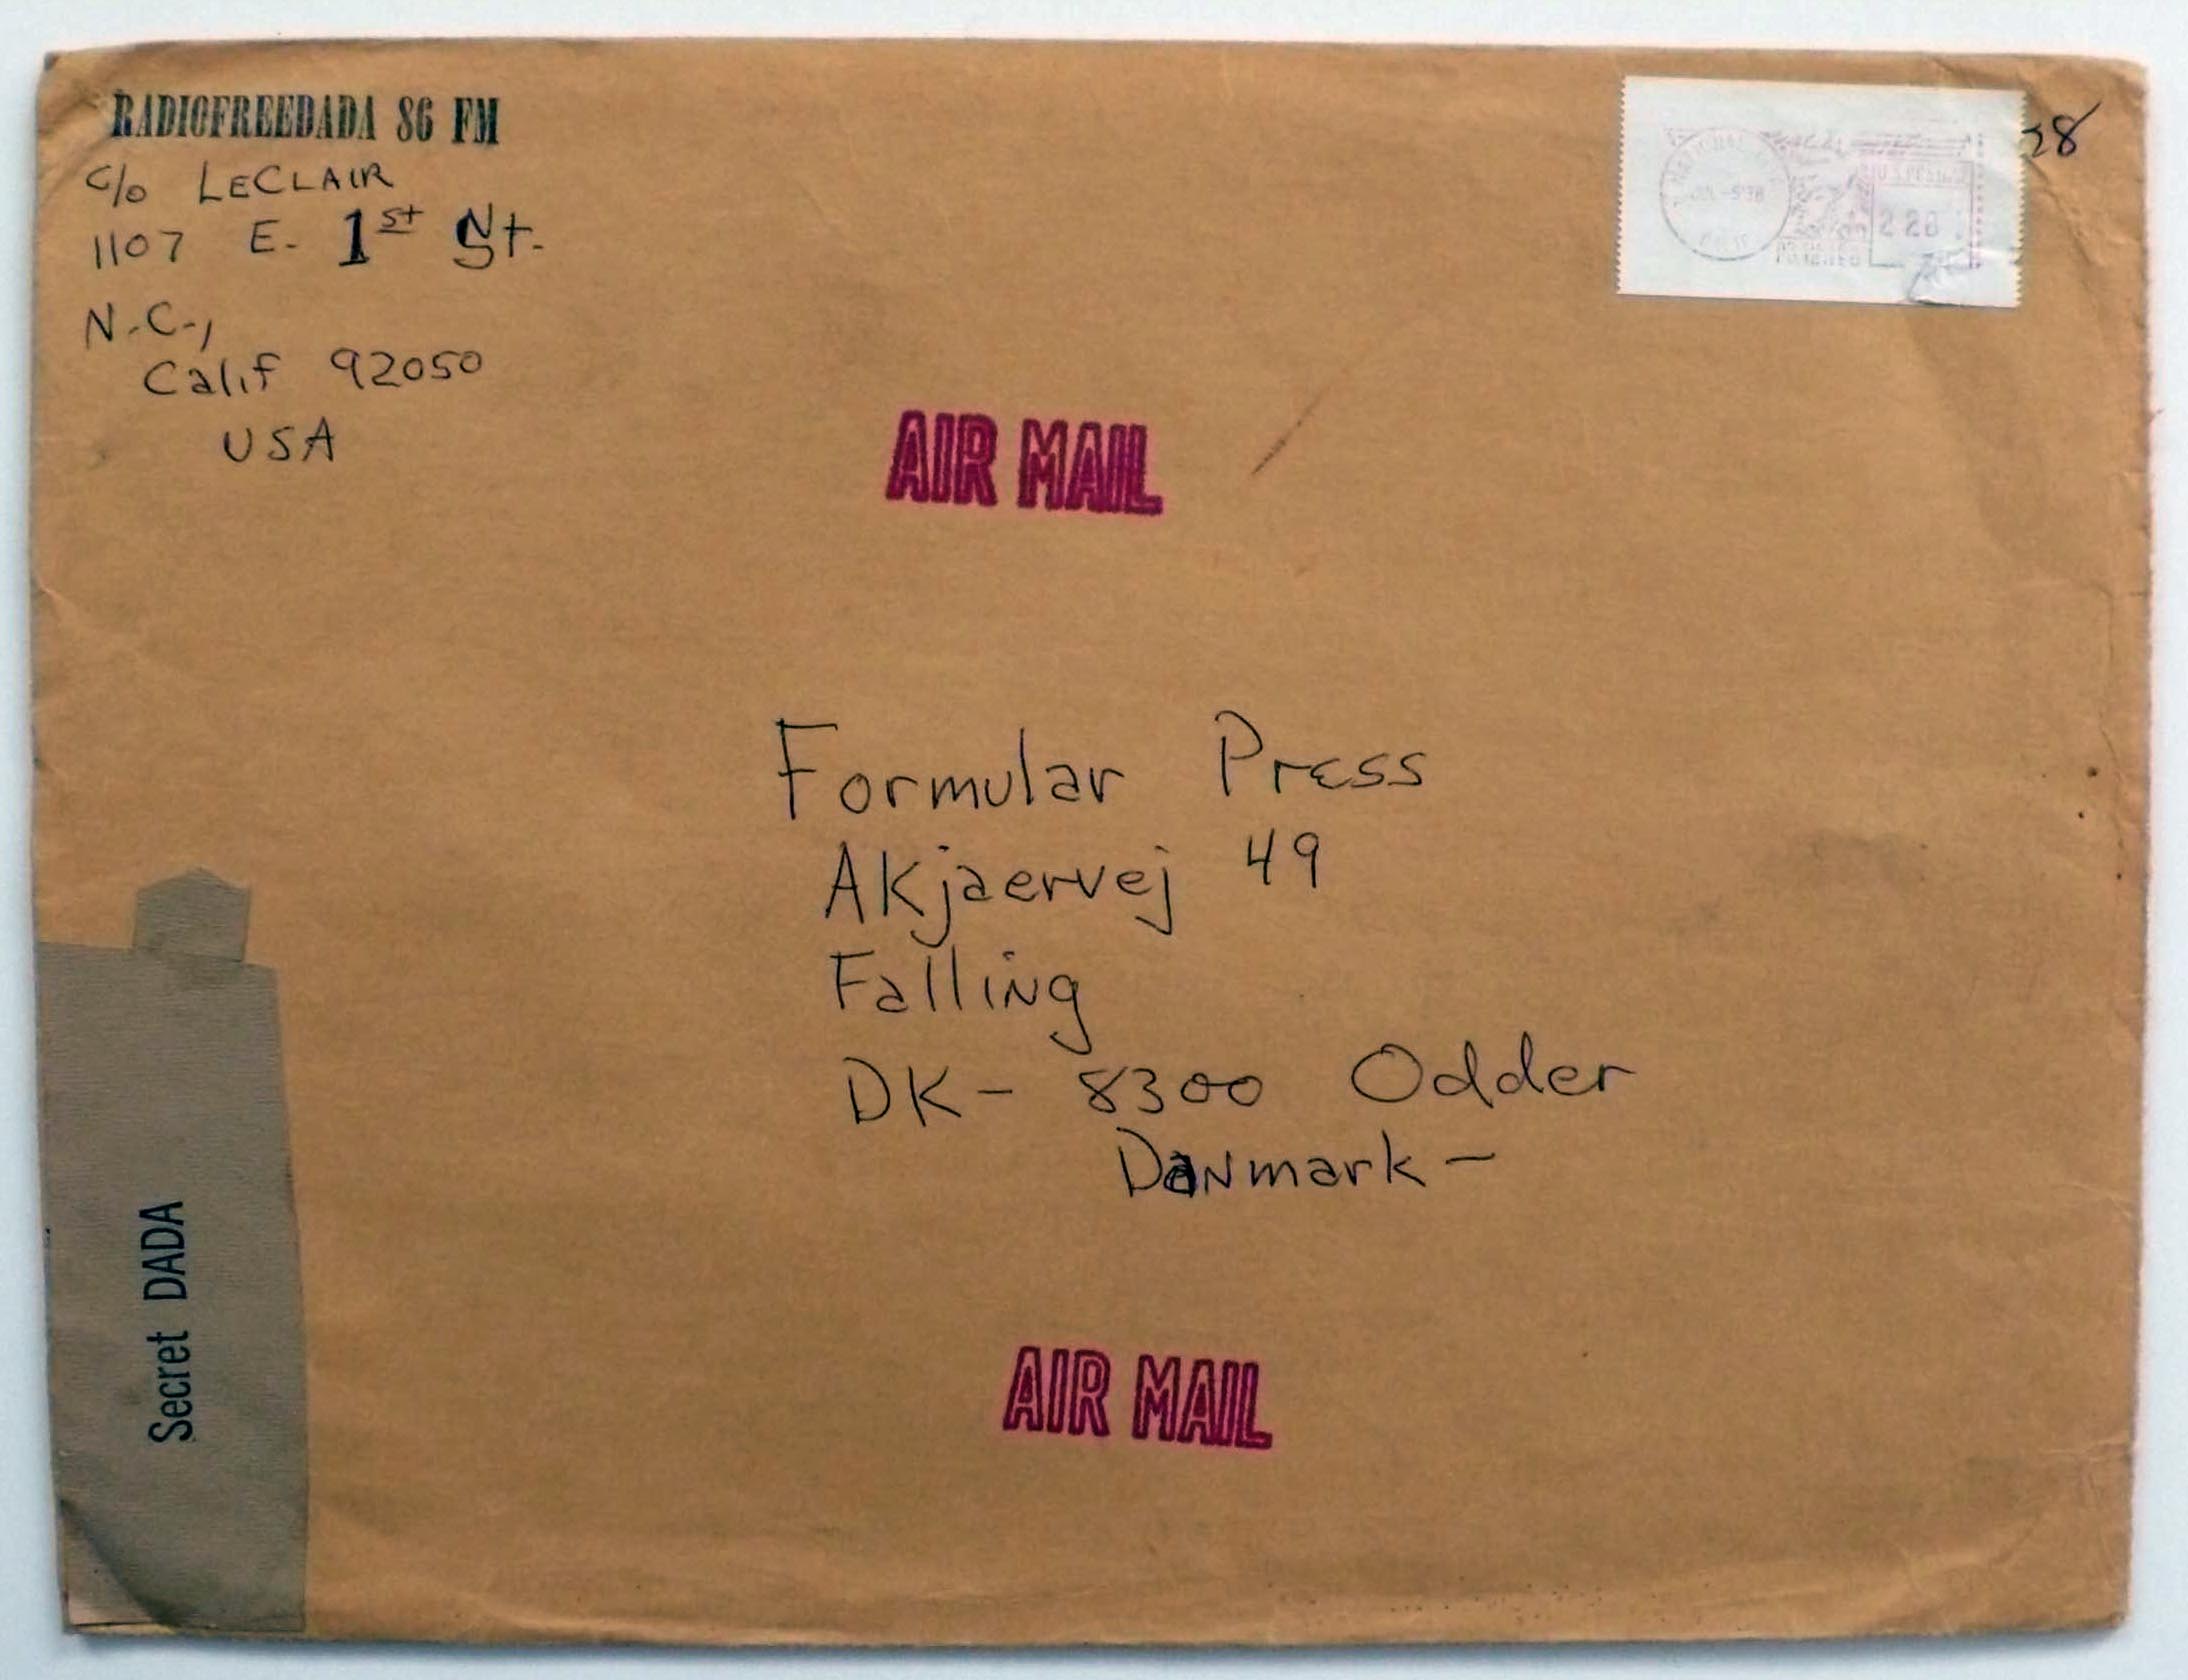 RADIOFREEDADA 86 FM
c/o LECLAIR
1107 E. 1st St.
N.C.,
Calif 92050
USA
28
2 28
AIR MAIL
Formular Press
Akjaervej 49
Falling
DK- 8300 Odder
Danmark -
Secret DADA
AIR MAIL